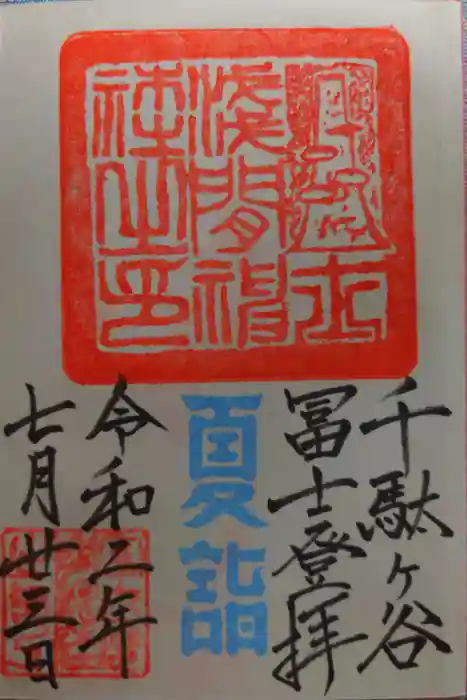 冨士
浅間神
社之印
千駄ヶ谷
冨士登拝
夏詣
令和二年
七月廿三日